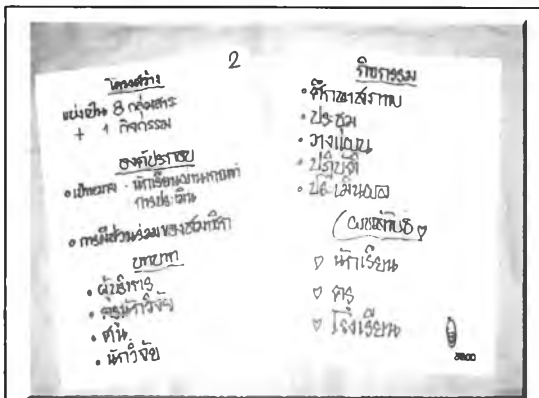 2
โครงสร้าง
แบ่งเป็น 8 กลุ่มสาระ
+ 1 กิจกรรม
องค์ประกอบ
• เป้าหมาย - นักเรียน
การประเมิน
• การมีส่วนร่วมของสมาชิก
บทบาท
• ผู้บริหาร
• ครูนักวิจัย
• ศน
• นักวิจัย
กิจกรรม
• ศึกษาสภาพ
• ประชุม
• วางแผน
• ปฏิบัติ
• ประเมินผล
ผลลัพธ์
นักเรียน
ครู
โรงเรียน